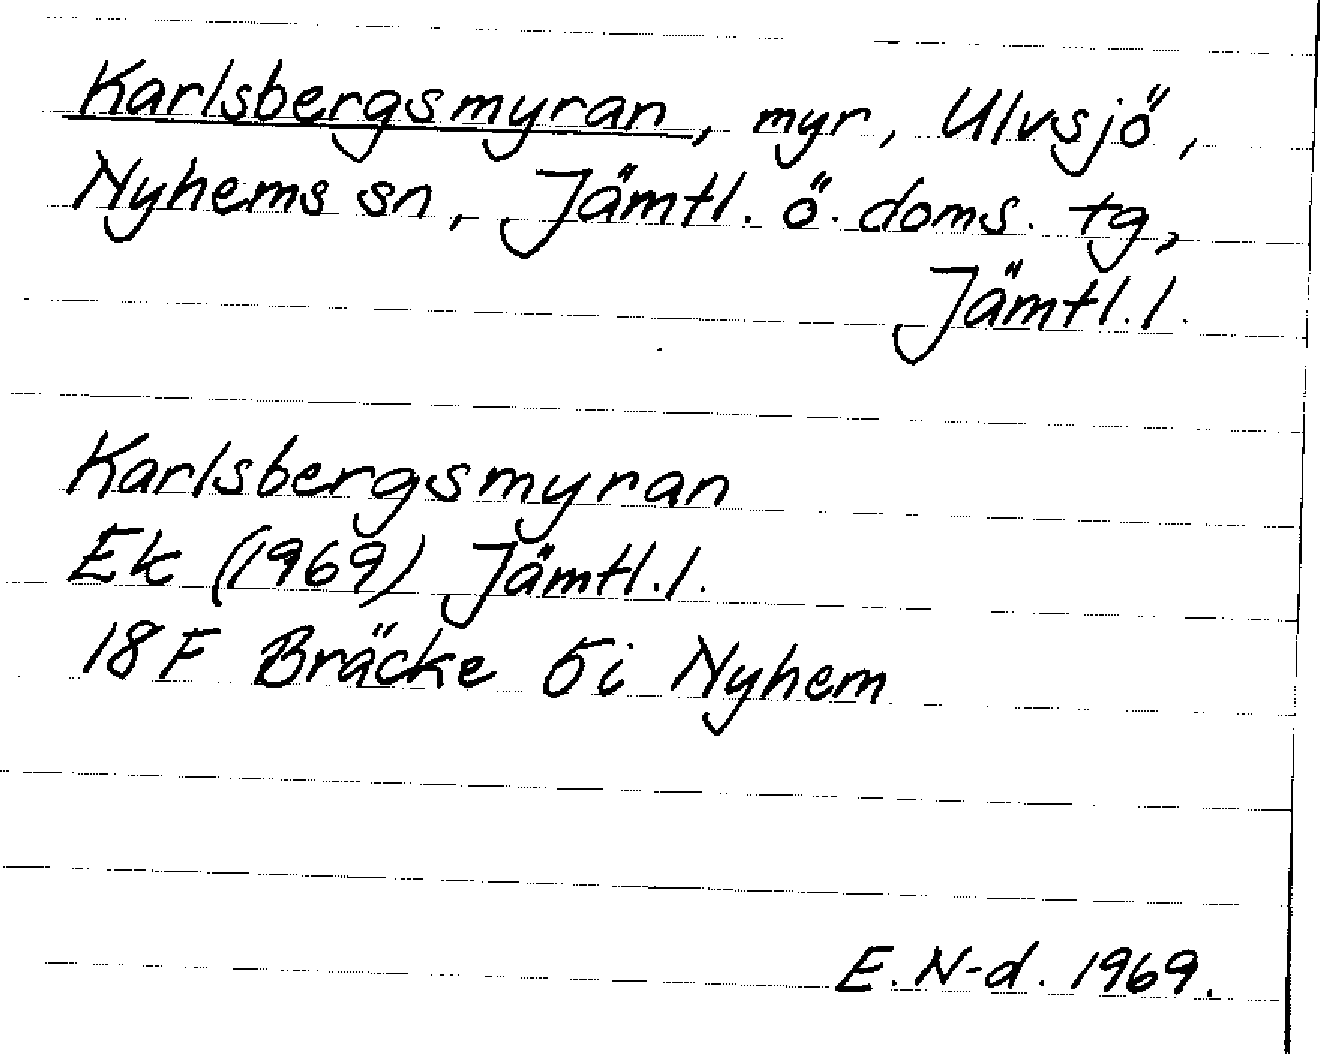 Karlsbergsmyran, myr, Ulvsjö,
Nyhems sn, Jämtl. ö. doms. tg,
Jämtl. l.
Karlsbergsmyran
Ek (1969) Jämtl. l.
18F Bräcke 5i Nyhem
E. N-d. 1969.